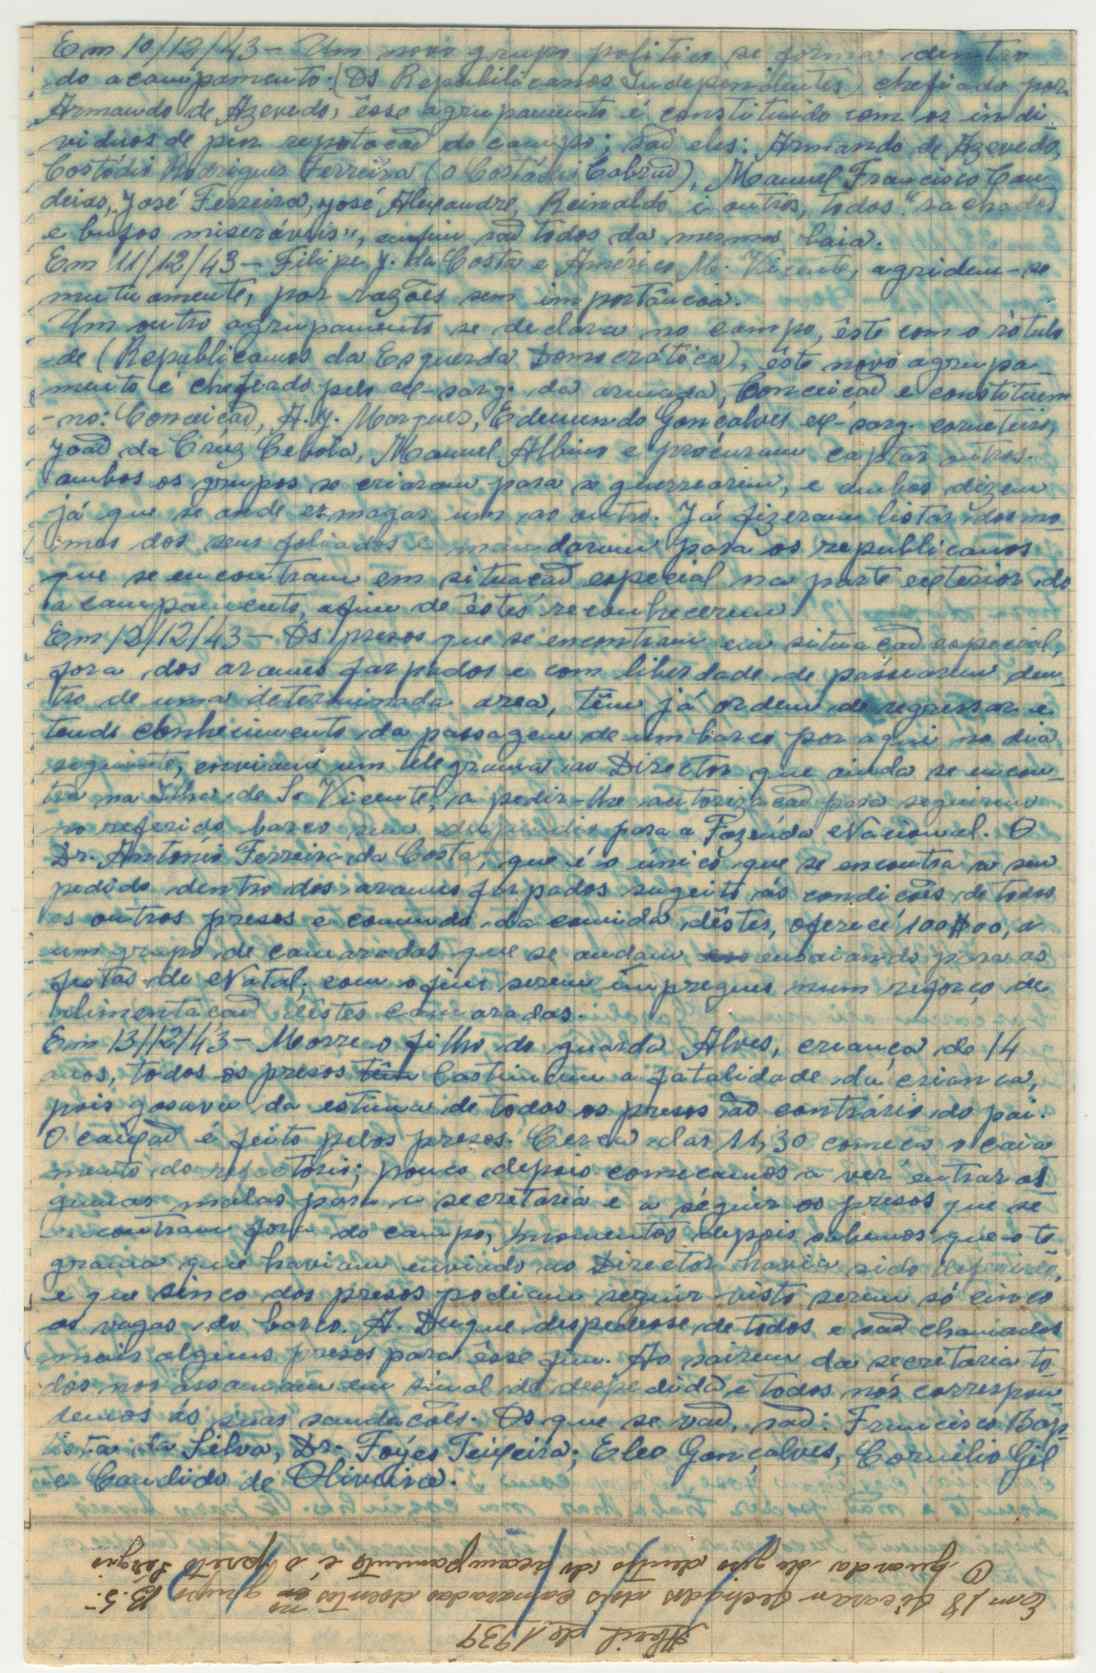 Em 10/12/43 - Um novo grupo politico se forma dentro
do acampamento. (Os Republicanos Independentes) chefiado por
Armando de Azevedo, êsse agrupamento é constituido com os indi
viduos de pior reputacaõ do campo; saõ eles: Armando de Azevedo,
Costódio Rodrigues Ferreira (o Costódio Cabraõ), Manuel Francisco Can
deias, José Ferreira, José Alexandre, Reinaldo i outros, todos "rachados
e bufos miseráveis", enfim saõ todos da mesma laia.
Em 11/12/43 - Filipe J. da Costa e Americo M. Vicente, agridem-se
mutuamente, por razões sem importância.
Um outro agrupamento se declara no campo, êste com o rótulo
de (Republicanos da Esquerda Democrática), êste novo agrupa-
mento é chefiado pelo ex-sarg. da armada, Conceiçaõ e constituem
-no: Conceicaõ, A. J. Marques, Edmundo Gonçalves ex-sarg. corneteiro,
Joaõ da Cruz Cebola, Manuel Albino e procuram captar outros.
ambos os grupos se criaram para se guerrearem, e ambos dizem
já que se ande esmagar um ao outro. Já fizeram listas dos no-
mes dos seus filiados e mandaram para os republicanos
que se encontram em situacaõ especial na parte exterior do
acampamento, afim de êstes reconhecerem.
Em 12/12/43 - Os presos que se encontram em situaçaõ especial,
fora dos arames farpados e com liberdade de passearem den-
tro de uma determinada area, têm já ordem de regressar e
tendo conhecimento da passagem de um barco por aqui no dia
seguinte, enviam um telegrama ao Director que ainda se encon-
tra na Ilha de S. Vicente, a pedir-lhe autorizacaõ para seguirem
no referido barco sem dispendio para a Fazenda Nacional. O
Dr. António Ferreira da Costa, que é o único que se encontra a seu
pedido dentro dos arames farpados sugeito ás condicoẽs de todos
os outros presos e comendo da comida dêstes, oferece 100$00, a
um grupo de camaradas que se andam ensaiando para as
festas de Natal, com o fim serem empregues num reforço de
alimentacaõ dêstes camaradas.
Em 13/12/43 - Morre o filho do guarda Alves, criança de 14
anos, todos os presos têm lastimam a fatalidade da crianca,
pois gosava da estima de todos os presos ao contrário do pai.
O caixaõ é feito pelos presos. Cerca das 11,30 começa o caia
mento do refeitório; pouco depois comecamos a ver entrar al
gumas malas para a secretaria e a seguir os presos que se
encontram fora do campo, momentos depois sabemos que o te
grama que haviam enviado ao Director havia sido deferido,
e que sinco dos presos podiam seguir visto serem só cinco
as vagas do barco. A. Duque despede-se de todos e saõ chamados
mais alguns presos para êsse fim. Ao sairem da secretaria to
dos nos assanam em sinal de despedida e todos nós correspon
demos ás suas saudacoẽs. Os que se vaõ, saõ: Francisco Bap-
tista da Silva, Dr. Foyes Teixeira; Eleo Gonçalves, Cornélio Gil
e Candido de Oliveira.
Abril de 1939
Em 18 ficaram fechados dois camaradas doentes no grupo B 5.
O guarda de giro dentro do acampamento é o preto Sergio